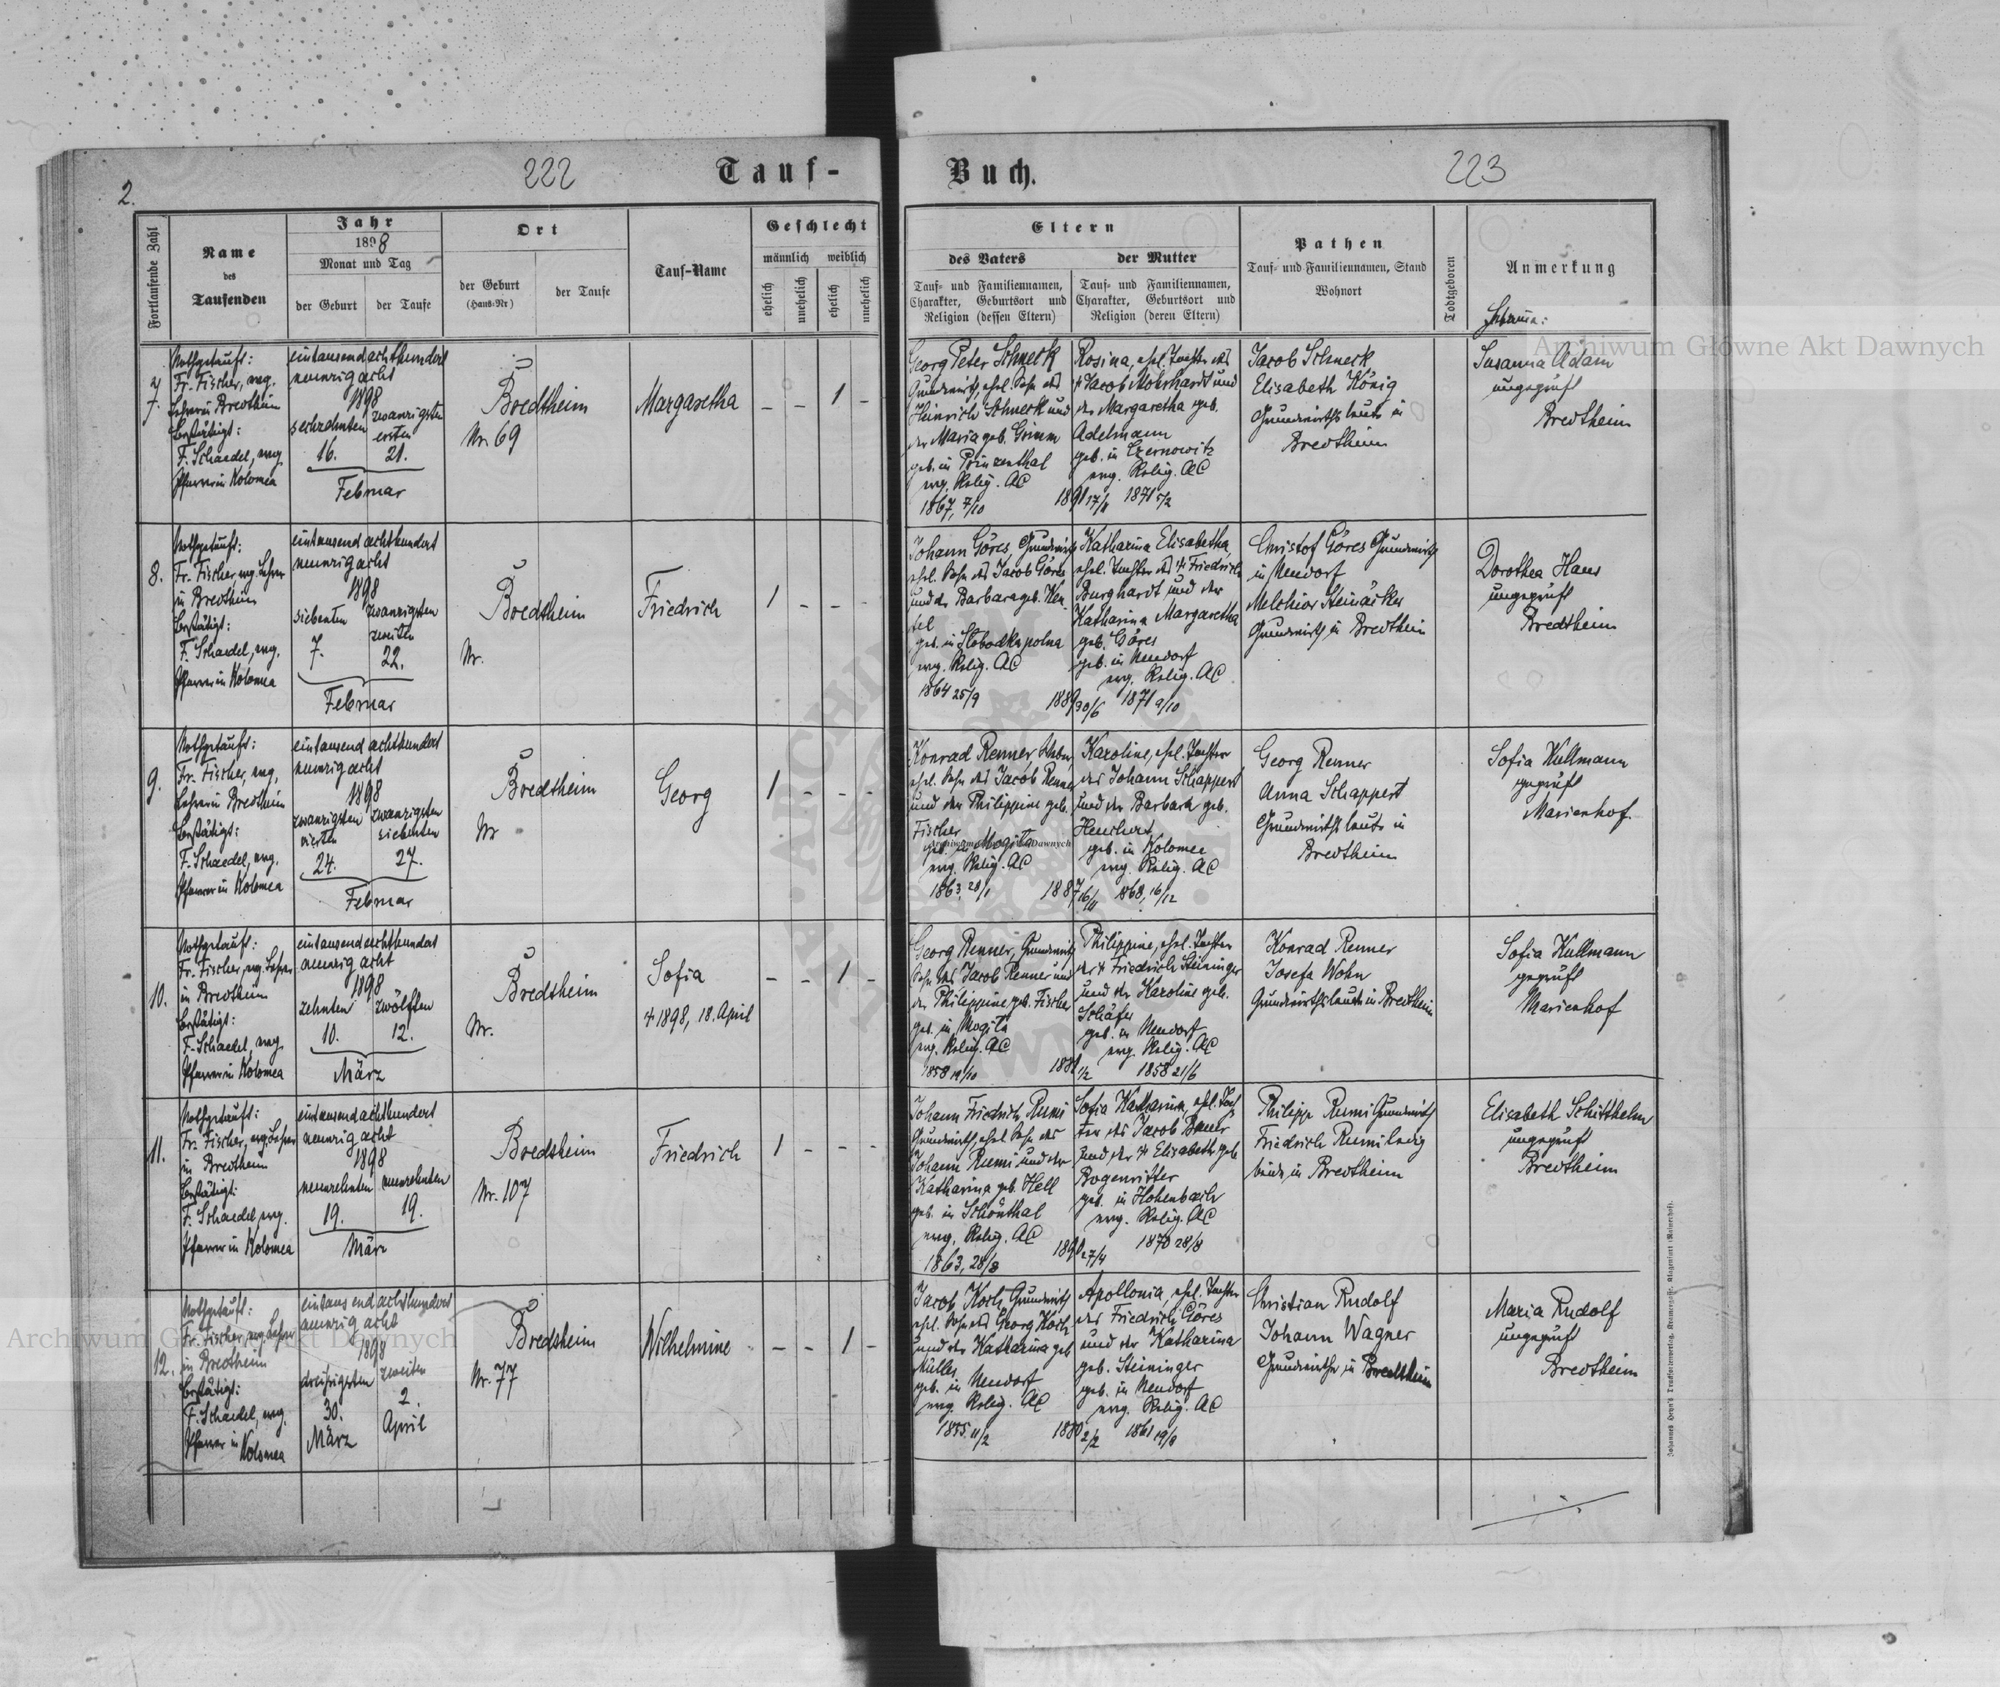 2.
222
Tauf-
Buch.
223
Fortlaufende Zahl
Name
des
Taufenden
Jahr
1898
Monat und Tag
der Geburt
der Taufe
Ort
der Geburt
(Haus-Nr)
der Taufe
Tauf-Name
Geschlecht
männlich
weiblich
ehelich
unehelich
ehelich
unehelich
Eltern
des Vaters
der Mutter
Tauf- und Familiennamen,
Charakter, Geburtsort und
Religion (dessen Eltern)
Tauf- und Familiennamen,
Charakter, Geburtsort und
Religion (deren Eltern)
Pathen
Tauf- und Familiennamen, Stand
Wohnort
Todtgeboren
Anmerkung
7.
Nothgetauft:
Fr. Fischer, evg.
Lehrer in Bredtheim
bestätigt:
F. Schaedel, evg.
Pfarrer in Kolomea
eintausendachthundert
neunzig acht
1898
sechzehnten
zwanzigsten
ersten
16.
21.
Februar
Bredtheim
Nr. 69
Margaretha
– – 1 –
Georg Peter Schneck
Grundwirth, ehel. Sohn des
Heinrich Schneck und
der Maria geb. Grimm
geb. in Prinzenthal
evg. Relig. AC
1867, 7/10
Rosina, ehel. Tochter des
Jacob Mohrhardt und
der Margaretha geb.
Adelmann
geb. in Czernowitz
evg. Relig. AC
1891 17/11 1871 5/2
Jacob Schneck
Elisabeth König
Grundwirths leute in
Bredtheim
Hebamme:
Susanna Adam
ungeprüft
Bredtheim
8.
Nothgetauft:
Fr. Fischer, evg. Lehrer
in Bredtheim
bestätigt:
F. Schaedel, evg.
Pfarrer in Kolomea
eintausend achthundert
neunzig acht
1898
siebenten
zwanzigsten
zweiten
7.
22.
Februar
Bredtheim
Nr.
Friedrich
1 – – –
Johann Göres, Grundwirth
ehel. Sohn des Jacob Göres
und der Barbara geb.
geb. in Slobodkapolna
evg. Relig. AC
1864 25/9
Katharina Elisabetha,
ehel. Tochter des Friedrich
Burghardt und der
Katharina Margaretha
geb. Göres
geb. in Neudorf
evg. Relig. AC
1889 30/6 1871 9/10
Christof Göres Grundwirth
in Neudorf
Melchior Steinäcker
Grundwirth in Bredtheim
Dorothea Hans
ungeprüft
Bredtheim
9.
Nothgetauft:
Fr. Fischer, evg.
Lehrer in Bredtheim
bestätigt:
F. Schaedel, evg.
Pfarrer in Kolomea
eintausend achthundert
neunzig acht
1898
zwanzigsten
vierten
zwanzigsten
siebenten
24.
27.
Februar
Bredtheim
Nr
Georg
1 – – –
Konrad Renner,
ehel. Sohn des Jacob Renner
und der Philippine geb.
Fischer
geb. in Mogila
evg. Relig. AC
1863, 28/1
Karoline, ehel. Tochter
des Johann Schappert
und der Barbara geb.
geb. in Kolomea
evg. Relig. AC
1887 16/11 1868, 16/12
Georg Renner
Anna Schappert
Grundwirths leute in
Bredtheim
Sofia Kullmann
geprüft
Marienhof
10.
Nothgetauft:
Fr. Fischer, evg. Lehrer
in Bredtheim
bestätigt:
F. Schaedel, evg.
Pfarrer in Kolomea
eintausendachthundert
neunzig acht
1898
zehnten
zwölften
10.
12.
März
Bredtheim
Nr.
Sofia
1898, 18. April
– – 1 –
Georg Renner, Grundwirth
Sohn des Jacob Renner und
der Philippine geb. Fischer
geb. in Mogila
evg. Relig. AC
1858 19/10
Philippine, ehel. Tochter
des Friedrich Steininger
und der Karoline geb.
Schäfer
geb. in Neudorf
evg. Relig. AC
1/2 1858 21/6
Konrad Renner
Josefa Wohn
Grundwirthsleute in Bredtheim
Sofia Kullmann
geprüft
Marienhof
11.
Nothgetauft:
Fr. Fischer, evg. Lehrer
in Bredtheim
bestätigt:
F. Schaedel, evg.
Pfarrer in Kolomea
eintausendachthundert
neunzig acht
1898
neunzehnten
neunzehnten
19.
19.
März
Bredtheim
Nr. 107
Friedrich
1 – – –
Johann Friedrich Rumi
Grundwirth, ehel. Sohn des
Johann Rumi und der
Katharina geb. Hell
geb. in Schönthal
evg. Relig. AC
1863, 28/8
Sofia Katharina, ehel. Toch
ter des Jacob Bauer
und der Elisabeth geb.
Bogenritter
geb. in Hohenbach
evg. Relig. AC
1890 27/4 1870 28/8
Philipp Rumi Grundwirth
Friedrich Rumi ledig
beide in Bredtheim
Elisabeth Schitthelm
ungeprüft
Bredtheim
12.
Nothgetauft:
Fr. Fischer, evg. Lehrer
in Bredtheim
bestätigt:
F. Schaedel, evg.
Pfarrer in
Kolomea
eintausend achthundert
neunzig acht
1898
dreißigsten
zweiten
30.
2.
März
April
Bredtheim
Nr. 77
Wilhelmine
– – 1 –
Jacob Koch Grundwirth
ehel. Sohn des Georg Koch
und der Katharina geb.
Müller
geb. in Neudorf
evg. Relig. AC
1855 11/2
Apollonia, ehel. Tochter
des Friedrich Göres
und der Katharina
geb. Steininger
geb. in Neudorf
evg. Relig. AC
1880 2/2 1861 19/8
Christian Rudolf
Johann Wagner
Grundwirthe in Bredtheim
Maria Rudolf
ungeprüft
Bredtheim
Archiwum Główne Akt Dawnych
Archiwum Główne Akt Dawnych